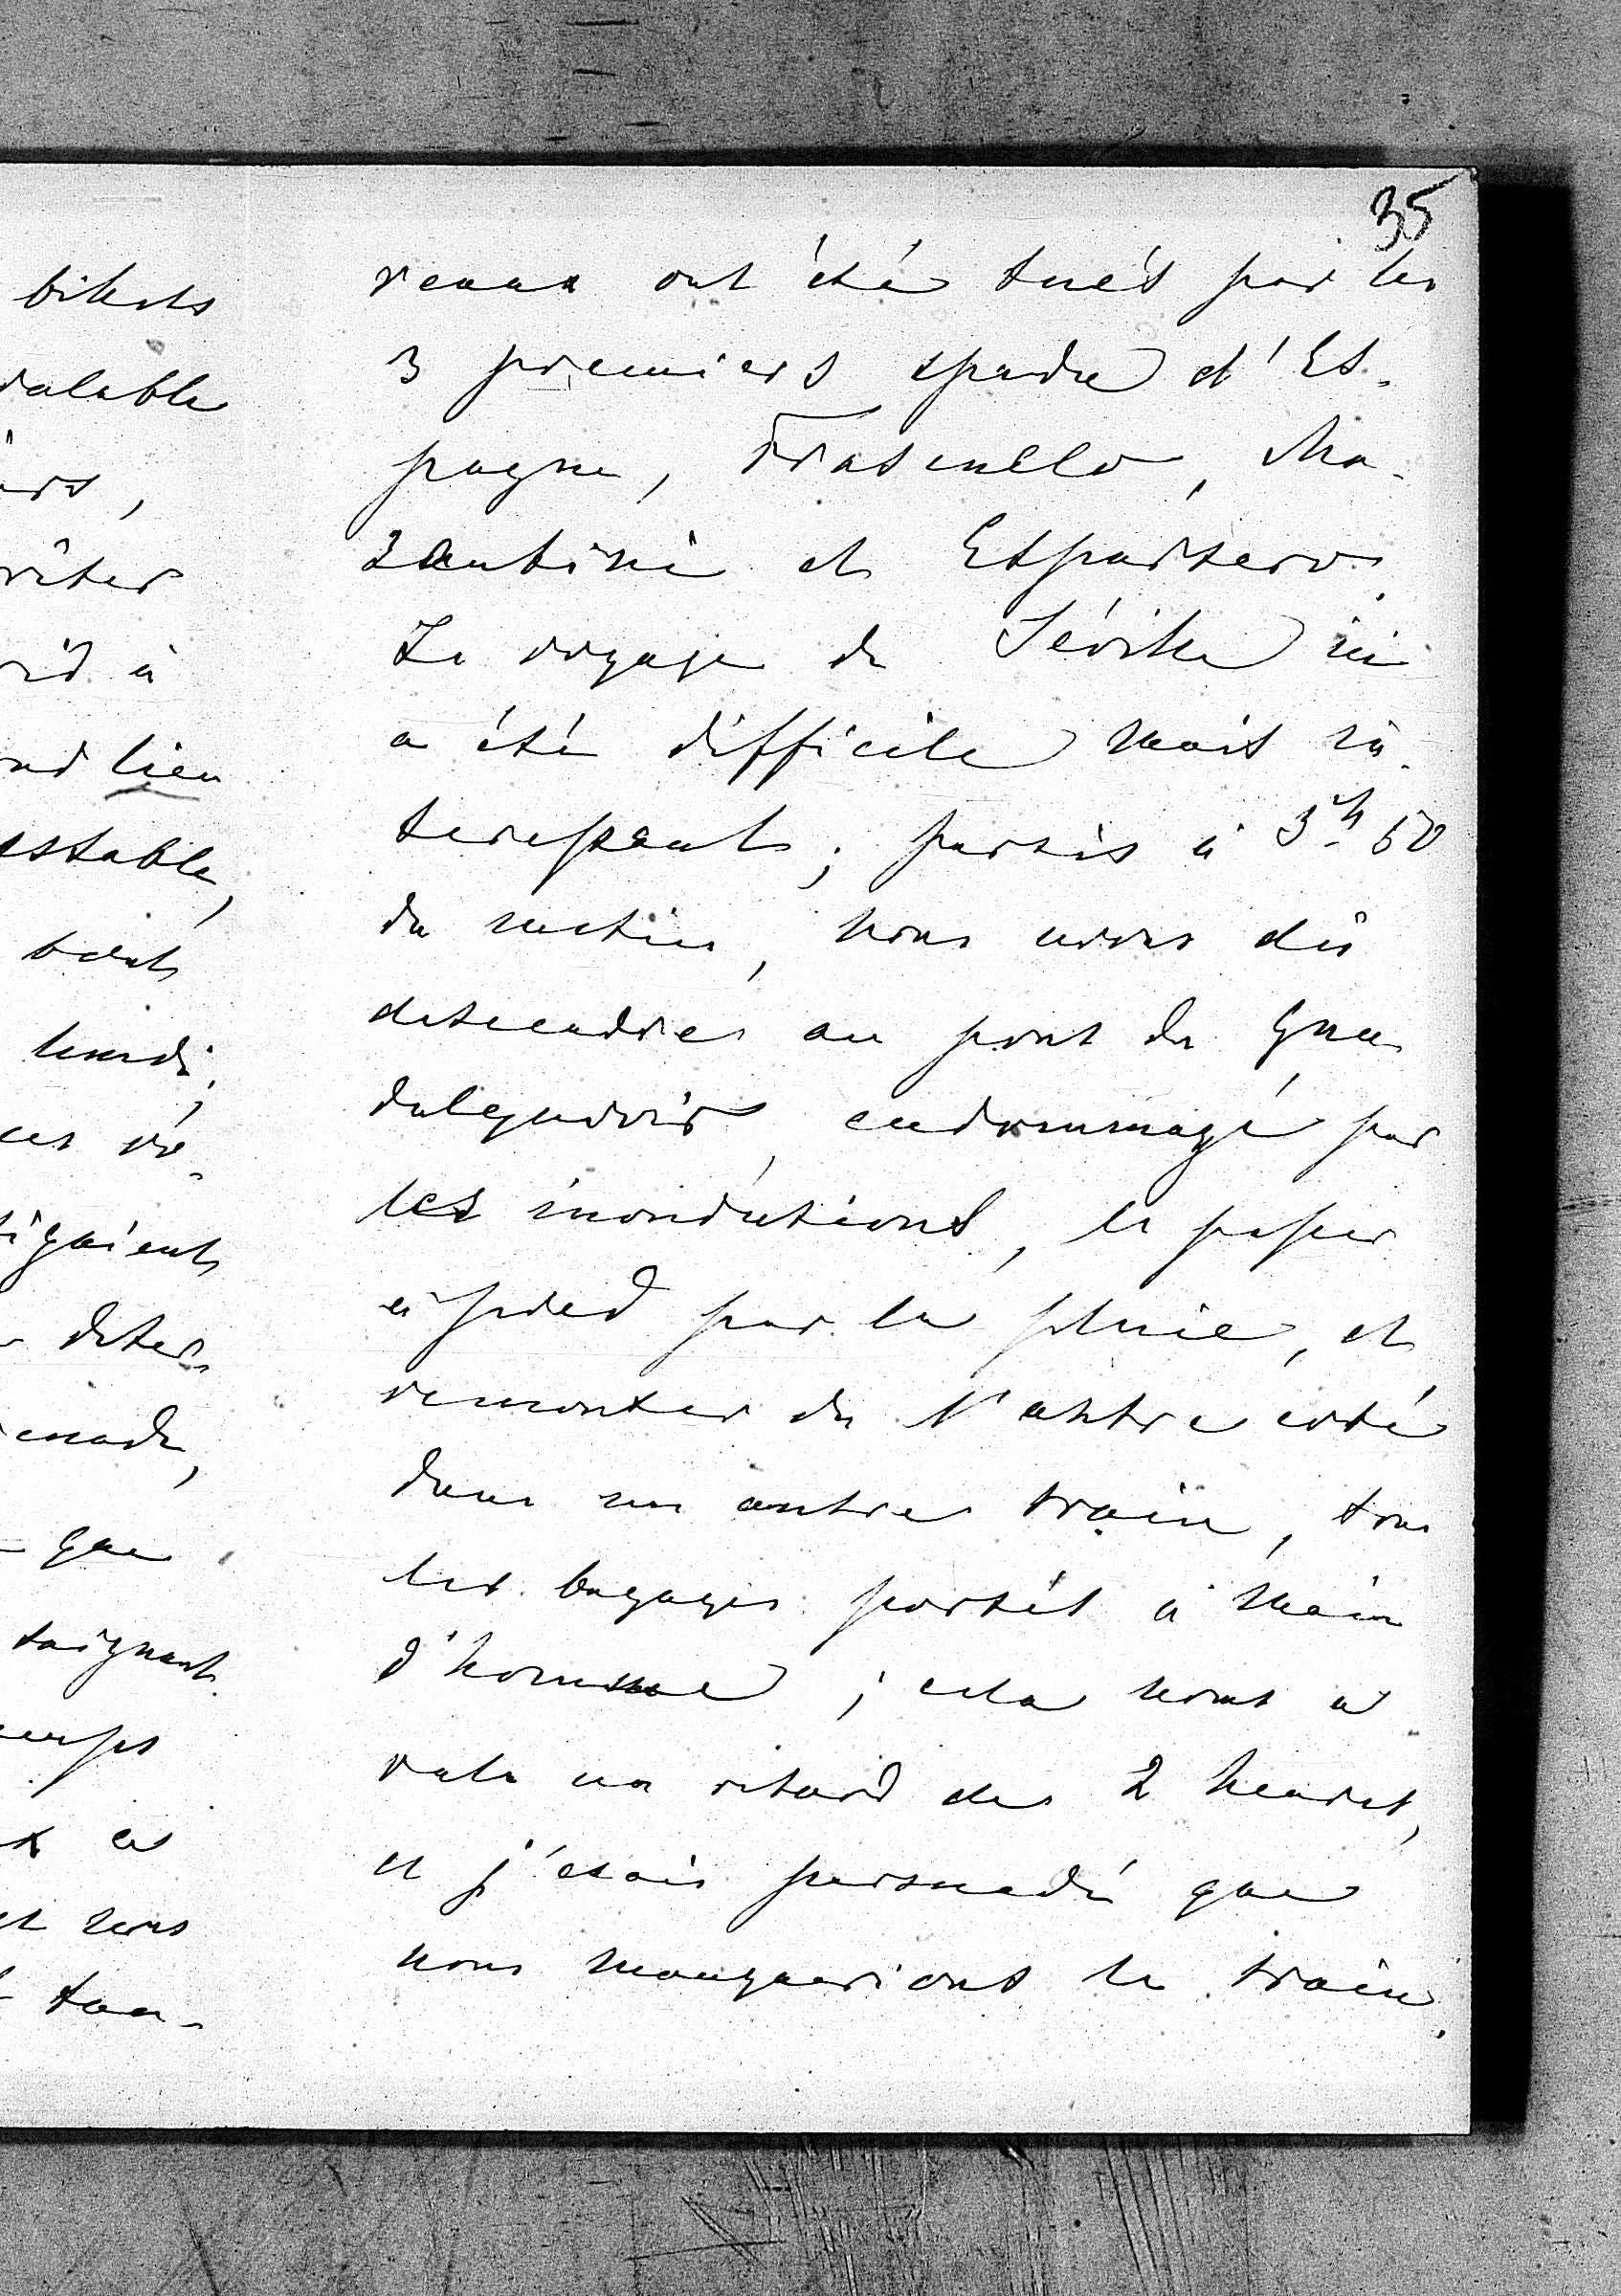 35
reaux ont été tués par les
3 premiers espada d'Es-
pagne, Frascuello, Ma-
zantini et Espartero.
Le voyage de Séville ici
a été difficile mais in-
teressant; partis à 3h 50
du matin, nous avons dû
descendre au pont du Gua
dalquivir, endommagé par
les inondations, le passer
à pied par la pluie, et
remonter de l'autre coté
dans un autre train, tous
les bagages portés à main
d'homme; cela nous a
valu un retard de 2 heures,
et j'étais persuadé que
nous manquerions le train.
billets
valable
lieu
lundi;
que